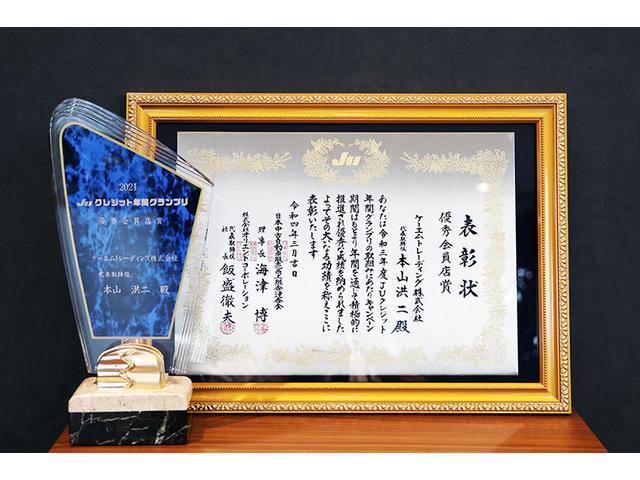 2021
JU クレジット年間グランプリ
優秀会員店賞
ケーエムトレーディング株式会社
代表取締役
本山 洪二 殿
JU
表彰状
優秀会員店賞
ケーエムトレーディング株式会社
代表取締役 本山洪二殿
あなたは令和三年度JUクレジット
年間グランプリの取組みにあたりキャンペーン
期間はもとより年間を通して積極的に
推進され優秀な成績を納められました
よってその大いなる功績を称えここに
表彰いたします
令和四年三月吉日
日本中古自動車販売商工組合連合会
理事長 海津 博
株式会社オリエントコーポレーション
代表取締役
社長
飯盛徹夫